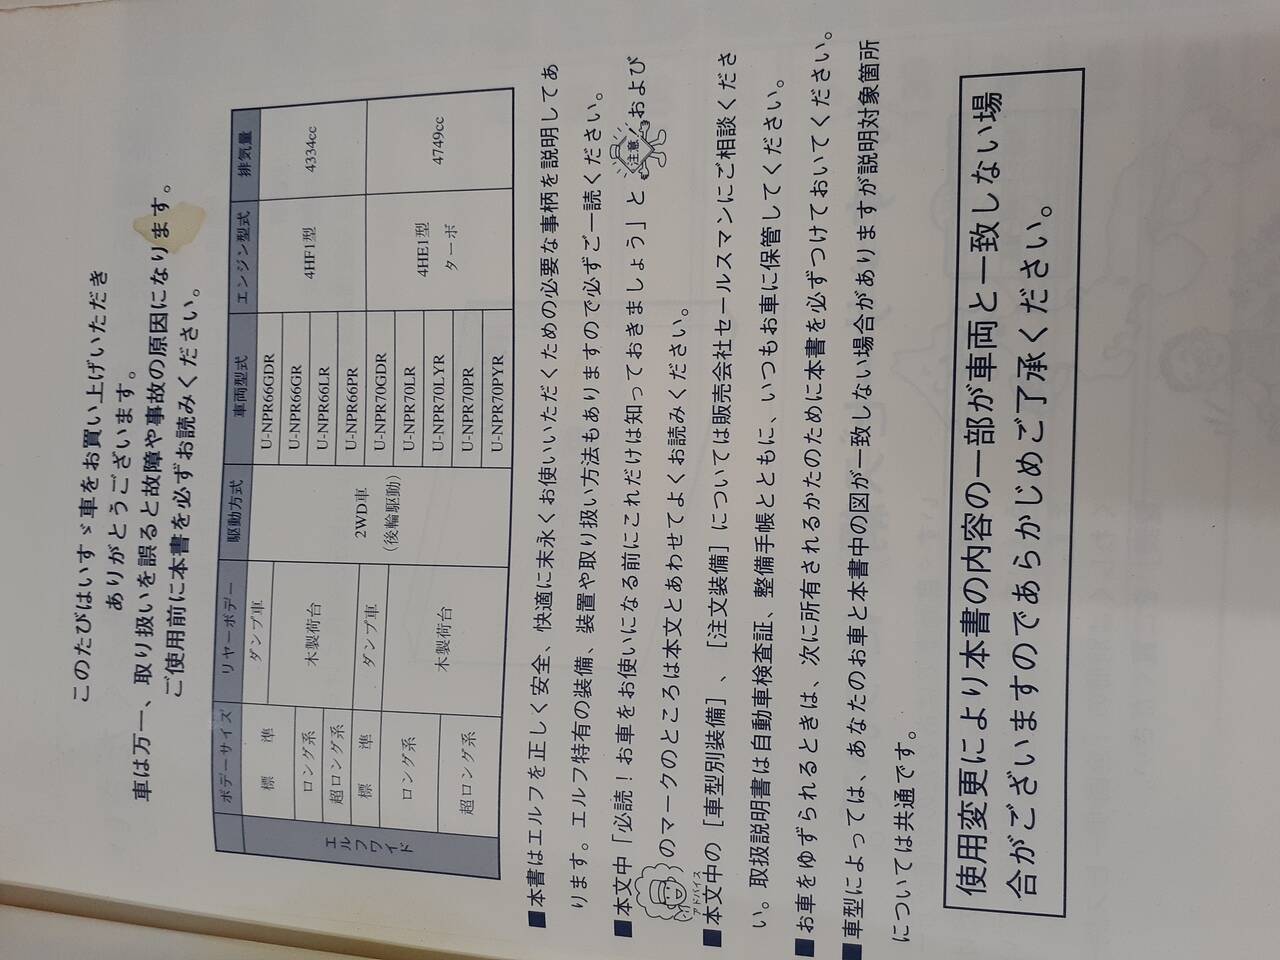 このたびはいすゞ車をお買い上げいただき
ありがとうございます。
車は万一、取り扱いを誤ると故障や事故の原因になります。
ご使用前に本書を必ずお読みください。
ボデーサイズ リヤーボデー 駆動方式 車両型式 エンジン型式 排気量
エルフワイド
標準 ダンプ車 2WD車 U-NPR66GDR 4HF1型 4334cc
(後輪駆動)
木製荷台 U-NPR66GR
ロング系 U-NPR66LR
超ロング系 U-NPR66PR
標準 ダンプ車 U-NPR70GDR 4HE1型 4749cc
ターボ
ロング系 木製荷台 U-NPR70LR
U-NPR70LYR
超ロング系 U-NPR70PR
U-NPR70PYR
■本書はエルフを正しく安全、快適に末永くお使いいただくための必要な事柄を説明してあ
ります。エルフ特有の装備、装置や取り扱い方法もありますので必ずご一読ください。
■本文中「必読！お車をお使いになる前にこれだけは知っておきましょう」と 注意 および
アドバイス のマークのところは本文とあわせてよくお読みください。
■本文中の［車型別装備］、［注文装備］については販売会社セールスマンにご相談くださ
い。取扱説明書は自動車検査証、整備手帳とともに、いつもお車に保管してください。
■お車をゆずられるときは、次に所有されるかたのために本書を必ずつけておいてください。
■車型によっては、あなたのお車と本書中の図が一致しない場合がありますが説明対象箇所
については共通です。
使用変更により本書の内容の一部が車両と一致しない場
合がございますのであらかじめご了承ください。